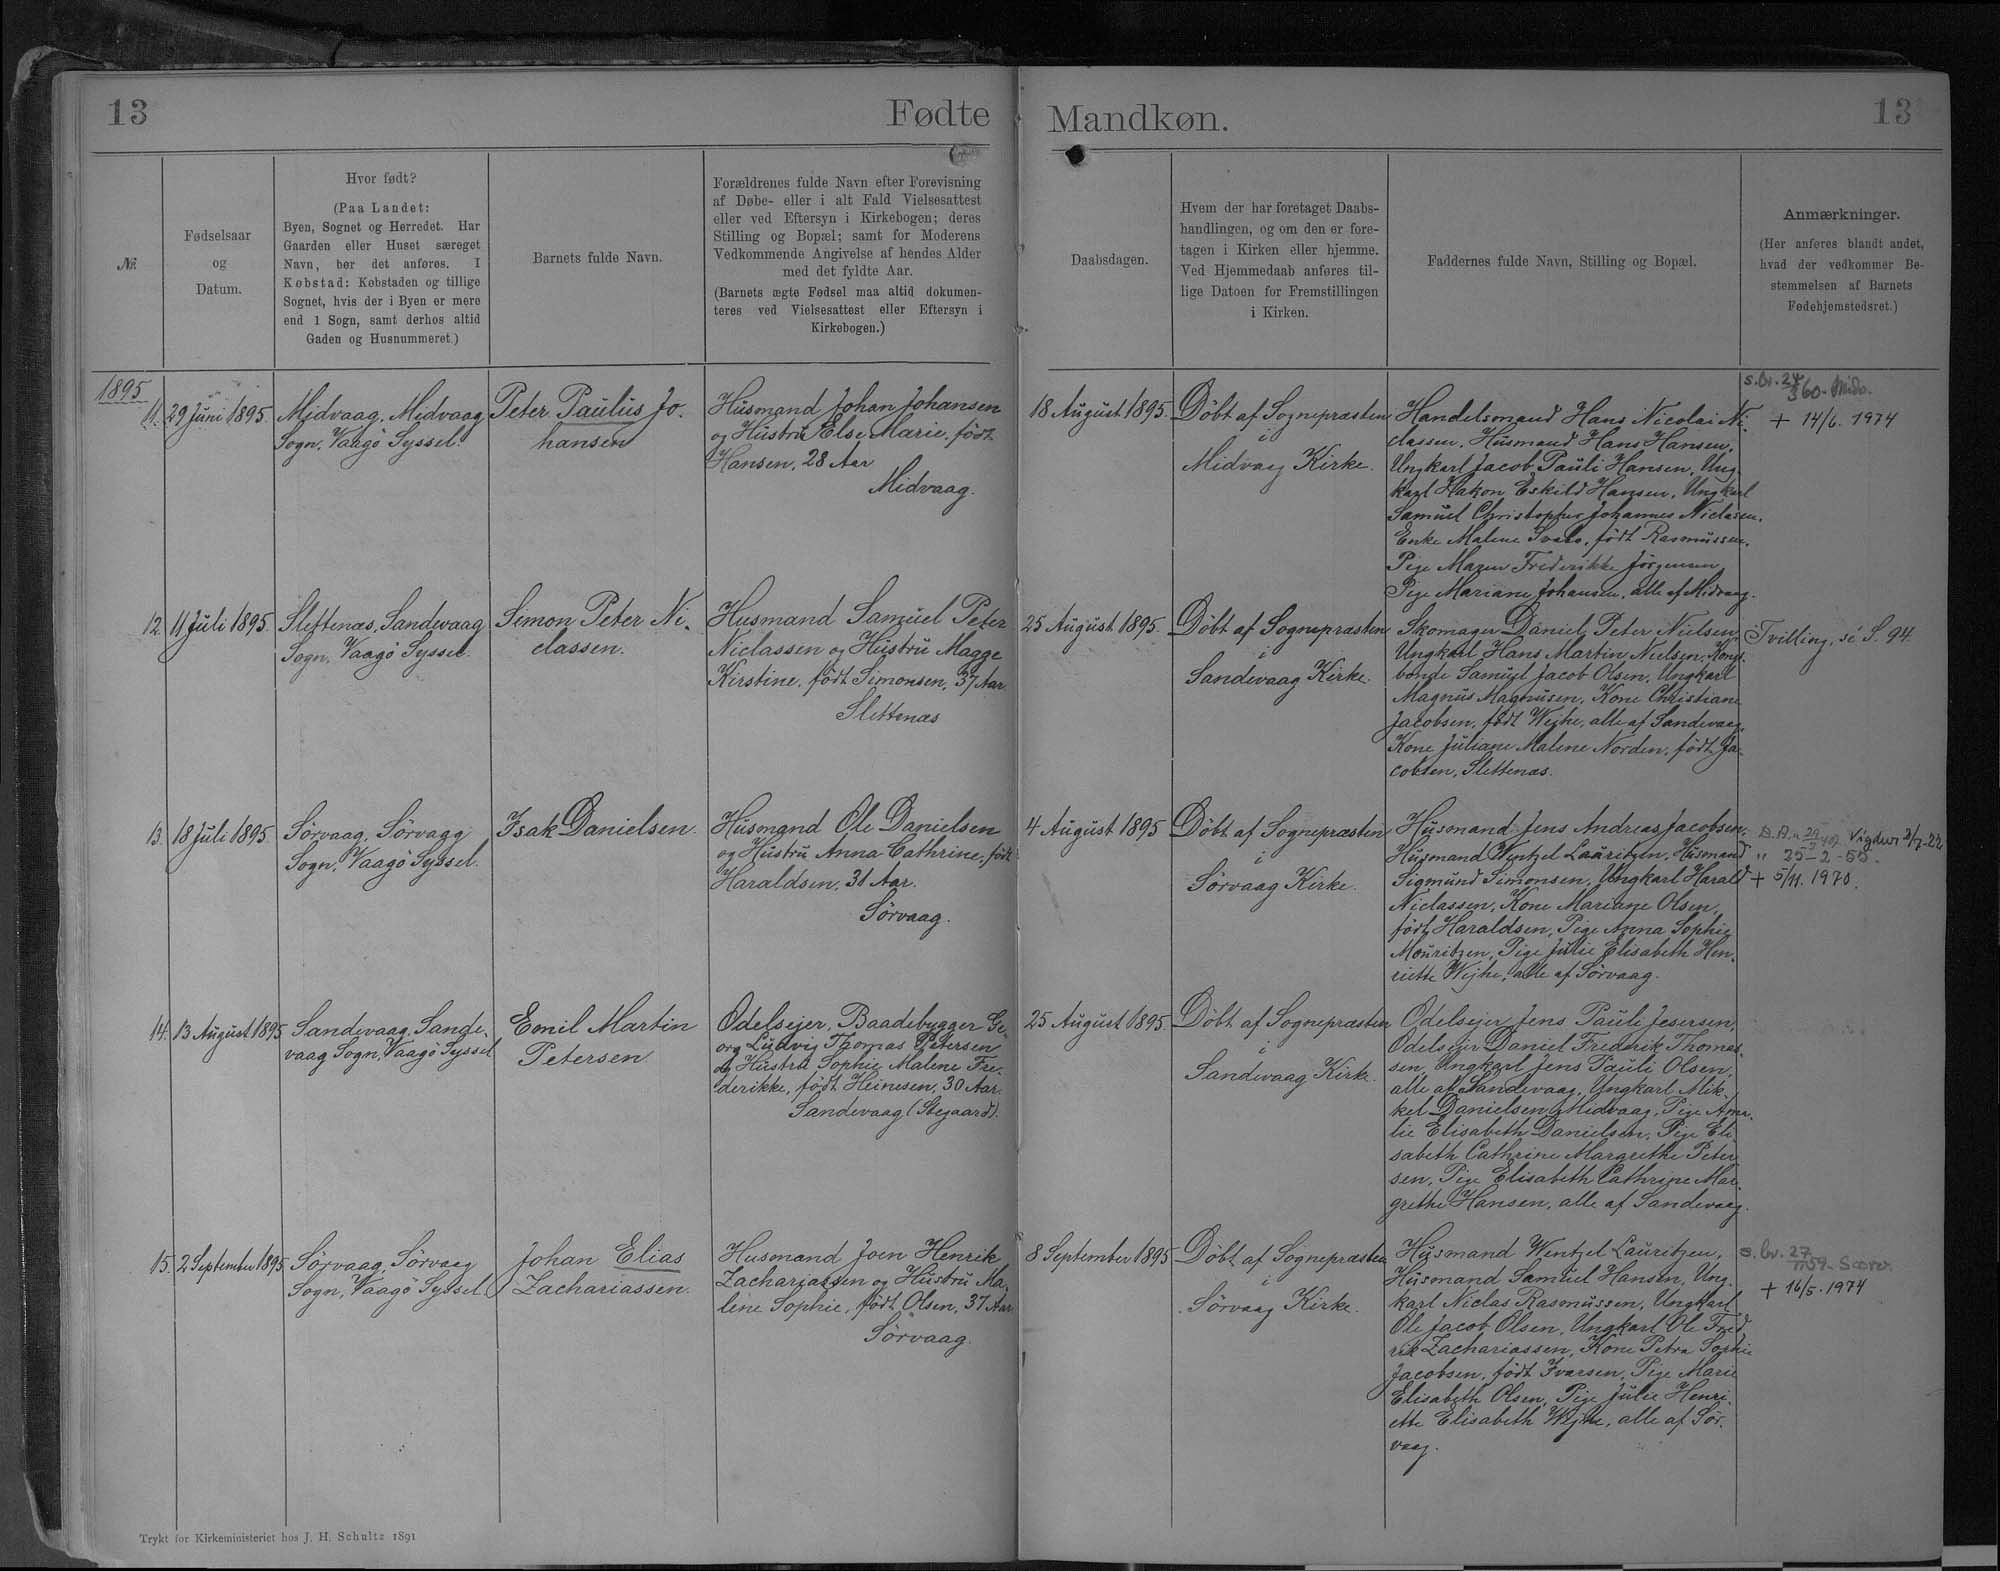 13
Fødte
Mandkøn.
13
№
Fødselsaar
og
Datum.
Hvor født?
(Paa Landet:
Byen, Sognet og Herredet. Har
Gaarden eller Huset særeget
Navn, bør det anføres. I
Købstad: Købstaden og tillige
Sognet, hvis der i Byen er mere
end 1 Sogn, samt derhos altid
Gaden og Husnummeret.)
Barnets fulde Navn.
Forældrenes fulde Navn efter Forevisning
af Døbe- eller i alt Fald Vielsesattest
eller ved Eftersyn i Kirkebogen; deres
Stilling og Bopæl; samt for Moderens
Vedkommende Angivelse af hendes Alder
med det fyldte Aar.
(Barnets ægte Fødsel maa altid dokumen-
teres ved Vielsesattest eller Eftersyn i
Kirkebogen.)
Daabsdagen.
Hvem der har foretaget Daabs-
handlingen, og om den er fore-
tagen i Kirken eller hjemme.
Ved Hjemmedaab anføres til-
lige Datoen for Fremstillingen
i Kirken.
Faddernes fulde Navn, Stilling og Bopæl.
Anmærkninger.
(Her anføres blandt andet,
hvad der vedkommer Be-
stemmelsen af Barnets
Fødehjemstedsret.)
1895
11. 29 Juni 1895.
Midvaag, Midvaag
Sogn, Vaagö Syssel.
Peter Paulus Jo-
hansen
Husmand Johan Johansen
og Hustru Else Marie, født
Hansen, 28 Aar
Midvaag.
18 August 1895.
Döbt af Sognepræsten
i
Midvaag Kirke.
Handelsmand Hans Nicolai Ni-
classen, Husmand Hans Hansen,
Ungkarl Jacob Pauli Hansen, Ung-
karl Hakon Eskild Hansen, Ungkarl
Samuel Christopher Johannes Niclasen,
Enke Malene født Rasmussen,
Pige Maren Frederikke Jörgensen
Pige Mariane Johansen, alle af Midvaag.
s. br. 24/3 60 - Midv.
+ 14/6. 1974
12. 11 Juli 1895.
Slettenæs, Sandevaag
Sogn, Vaagö Syssel.
Simon Peter Ni-
classen.
Husmand Samuel Peter
Niclassen og Hustru Magge
Kirstine, født Simonsen, 37 Aar
Slettenæs
25 August 1895.
Döbt af Sognepræsten
i
Sandevaag Kirke.
Skomager Daniel Peter Nielsen,
Ungkarl Hans Martin Nielsen, Kongs-
bonde Samuel Jacob Olsen, Ungkarl
Magnus Magnusen, Kone Christiane
Jacobsen, født Wejhe, alle af Sandevaag,
Kone Juliane Malene Norden, født Ja-
cobsen, Slettenæs.
Tvilling, se S. 94.
13. 18 Juli 1895.
Sörvaag, Sörvaag
Sogn, Vaagö Syssel.
Isak Danielsen.
Husmand Ole Danielsen
og Hustru Anna Cathrine, født
Haraldsen, 31 Aar.
Sörvaag.
4 August 1895
Döbt af Sognepræsten
i
Sörvaag Kirke.
Husmand Jens Andreas Jacobsen,
Husmand Wentzel Lauritzen, Husmand
Sigmund Simonsen, Ungkarl Harald
Niclassen, Kone Mariane Olsen,
født Haraldsen, Pige Anna Sophie
Mouritzen, Pige Julie Elisabeth Hen-
riette Wejhe, alle af Sörvaag.
" 25-2-55.
+ 5/11. 1970.
14. 13 August 1895
Sandevaag, Sande-
vaag Sogn, Vaagö Syssel
Emil Martin
Petersen.
Odelsejer, Baadebygger Ge-
org Ludvig Thomas Petersen
og Hustru Sophie Malene Fre-
derikke, født Heinesen, 30 Aar.
Sandevaag (Stegaard).
25 August 1895.
Döbt af Sognepræsten
i
Sandevaag Kirke.
Odelsejer Jens Pauli Jesersen,
Odelsejer Daniel Frederik Thomas-
sen, Ungkarl Jens Pauli Olsen,
alle af Sandevaag, Ungkarl Mik-
kel Danielsen, Midvaag, Pige Ama-
lie Elisabeth Danielsen, Pige Eli-
sabeth Cathrine Margrethe Peter-
sen, Pige Elisabeth Cathrine Mar-
grethe Hansen, alle af Sandevaag.
15. 2 September 1895
Sörvaag, Sörvaag
Sogn, Vaagö Syssel.
Johan Elias
Zachariassen.
Husmand Joen Henrik
Zachariassen og Hustru Ma-
lene Sophie, født Olsen, 37 Aar
Sörvaag.
8 September 1895
Döbt af Sognepræsten
i
Sörvaag Kirke.
Husmand Wentzel Lauritzen,
Husmand Samuel Hansen, Ung-
karl Niclas Rasmussen, Ungkarl
Ole Jacob Olsen, Ungkarl Ole Fred-
rik Zachariassen, Kone Petra Sophie
Jacobsen, født Ivarsen, Pige Marie
Elisabeth Olsen, Pige Julie Henri-
ette Elisabeth Wejhe, alle af Sör-
vaag.
s. br. 27
+ 16/5. 1974
Trykt for Kirkeministeriet hos J. H. Schultz 1891